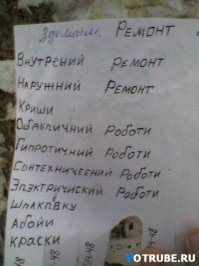 Зделайм. РЕМОНТ
ВНУТРЕНИЙ РЕМОНТ
НАРУЖНИЙ РЕМОНТ
КРИШИ
ОБЛЕПИЧНИЙ РОБОТИ
ГИПРОТИЧНИЙ РОБОТИ
СОНТЕХНИЧЕСНИЙ РОБОТИ
ЭЛЭКТРИЧИСКИЙ РОБОТИ
ШПАКЛЁВКУ
АБОЙИ
КРАСКИ
VOTRUBE.RU